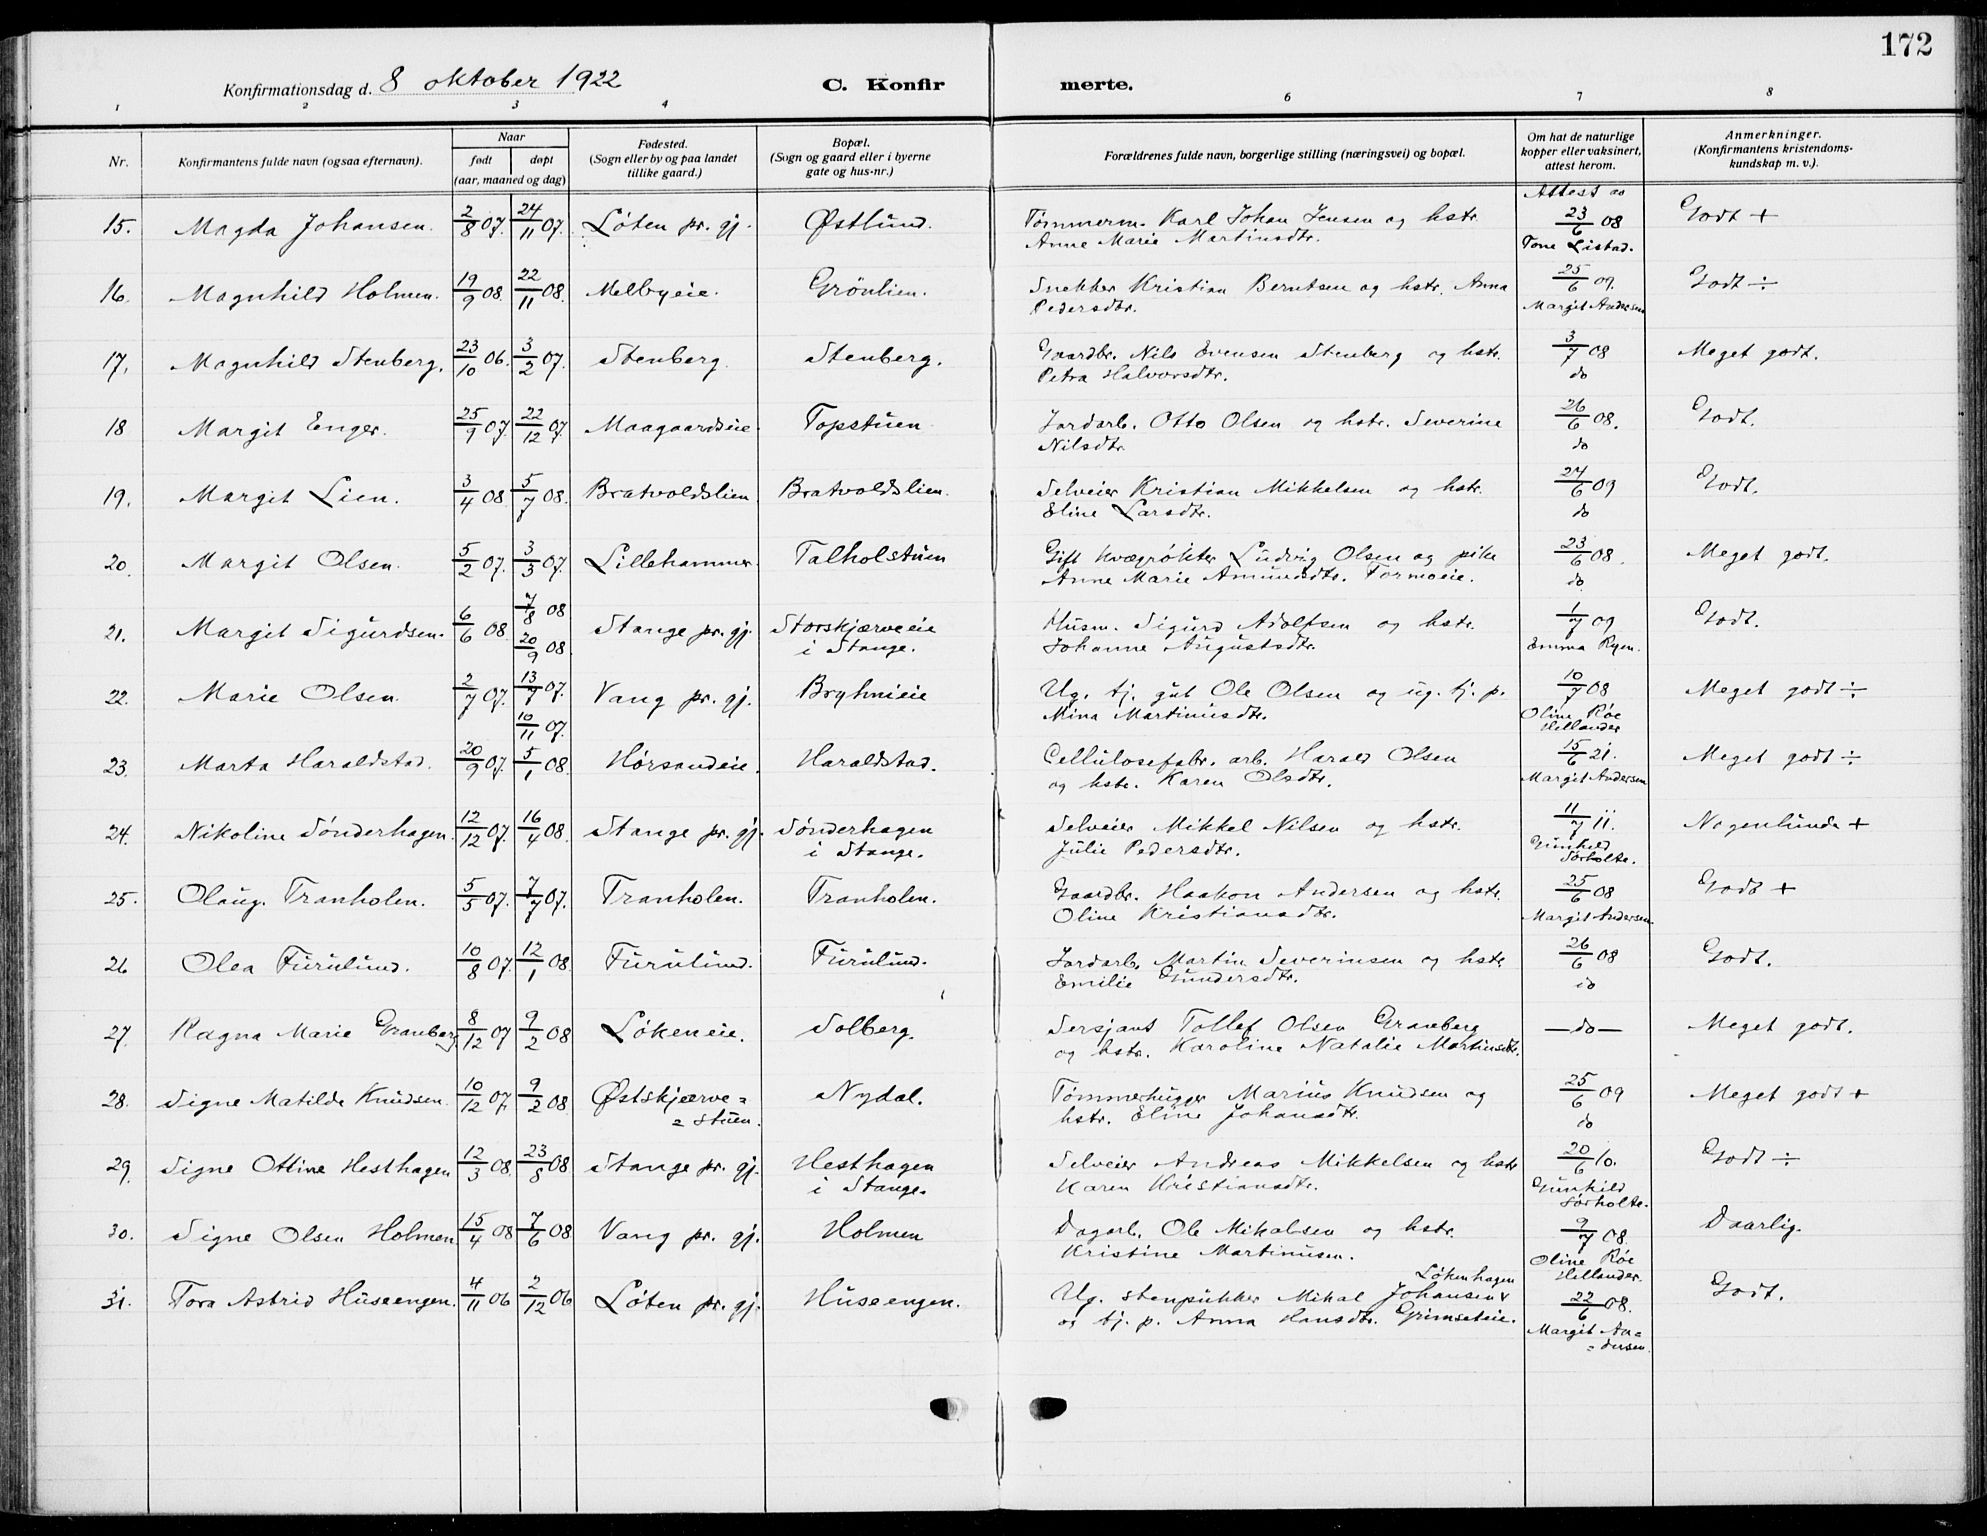 172
Konfirmationsdag d. 8 oktober 1922 C. Konfirmerte.
1 2 3 4 6 7 8
Nr. Konfirmantens fulde navn (ogsaa efternavn). Naar født døpt (aar, maaned og dag) Fødested. (Sogn eller by og paa landet tillike gaard.) Bopæl. (Sogn og gaard eller i byerne gate og hus-nr.) Forældrenes fulde navn, borgerlige stilling (næringsvei) og bopæl. Om hat de naturlige kopper eller vaksinert, attest herom. Anmerkninger. (Konfirmantens kristendoms-kundskap m. v.).
15. Magda Johansen. 2/8 07. 24/11 07. Løten pr. gj. Østlund. Tømmerm. Karl Johan Jensen og hstr. Anne Marie Martinsdtr. Attest av 23/6 08 Tone Listad. Godt +
16. Magnhild Holmen. 19/9 08. 22/11 08. Melbyeie. Grönlien. Snekker Kristian Berntsen og hstr. Anna Pedersdtr. 25/6 09. Margit Andersen Godt ÷
17. Magnhild Stenberg. 23/10 06. 3/2 07. Stenberg. Stenberg. Gaardbr. Nils Evensen Stenberg og hstr. Petra Halvorsdtr. 3/7 08 do Meget godt.
18 Margit Enger. 25/9 07. 22/12 07. Maagaardseie. Topstuen Jordarb. Otto Olsen og hstr. Severine Nilsdtr. 26/6 08. do Godt.
19. Margit Lien. 3/4 08. 5/7 08. Bratvoldslien. Bratvoldslien. Selveier Kristian Mikkelsen og hstr. Eline Larsdtr. 24/6 09 do Godt.
20. Margit Olsen. 5/2 07. 3/3 07. Lillehammer. Talholstuen Gift kvægrökter Ludvig Olsen og pike Anne Marie Amundsdtr. Tormoeie. 23/6 08. do Meget godt.
21. Margit Sigurdsen. 6/6 08. 7/8 08 20/9 08 Stange pr. gj. Storskjærveeie i Stange. Husm. Sigurd Adolfsen og hstr. Johanne Augustsdtr. 1/7 09 Emma Ryen. Godt.
22. Marie Olsen. 2/7 07. 13/7 07. 10/11 07. Vang pr. gj. Bryhnieie Ug. tj. gut Ole Olsen og ug. tj. p. Mina Martinusdtr. 10/7 08 Oline Røe Hellander Meget godt ÷
23. Marta Haraldstad. 20/9 07. 5/1 08. Hørsandeie. Haraldstad. Cellulosefabr. arb. Harald Olsen og hstr. Karen Olsdtr. 15/6 21. Margit Andersen Meget godt ÷
24. Nikoline Sönderhagen. 12/12 07. 16/4 08. Stange pr. gj. Sönderhagen i Stange. Selveier Mikkel Nilsen og hstr. Julie Pedersdtr. 11/7 11. Gunhild Sørholte. Nogenlunde +
25. Olaug Tranholen. 5/5 07. 7/7 07. Tranholen. Tranholen. Gaardbr. Haakon Andersen og hstr. Oline Kristiansdtr. 25/6 08 Margit Andersen Godt +
26 Olea Furulund. 10/8 07. 12/1 08. Furulund. Furulund. Jordarb. Martin Severinsen og hstr. Emilie Gundersdtr. 26/6 08 do Godt.
27. Ragna Marie Granberg. 8/12 07 9/2 08 Løkeneie. Solberg. Sersjant Tollef Olsen Granberg og hstr. Karoline Natalie Martinsdtr. —do— Meget godt.
28. Signe Matilde Knudsen. 10/12 07. 9/2 08 Østskjærve=stuen. Nydal. Tömmerhugger Marius Knudsen og hstr. Eline Johansdtr. 25/6 09 do Meget godt +
29. Signe Otline Hesthagen 12/3 08. 23/8 08 Stange pr. gj. Hesthagen i Stange. Selveier Andreas Mikkelsen og hstr Karen Kristiansdtr. 20/6 10. Gunhild Sørholte. Godt ÷
30. Signe Olsen Holmen 15/4 08 7/6 08 Vang pr. gj. Holmen Dagarb. Ole Mikalsen og hstr. Kristine Martinusen. 9/7 08. Oline Røe Hellander. Daarlig.
31. Tora Astrid Huseengen. 4/11 06 2/12 06 Løten pr. gj. Huseengen. Ug. stenpukker Mikal Johansen Løkenhagen og tj. p. Anna Hansdtr. Grimseteie. 22/6 08. Margit An=dersen. Godt.